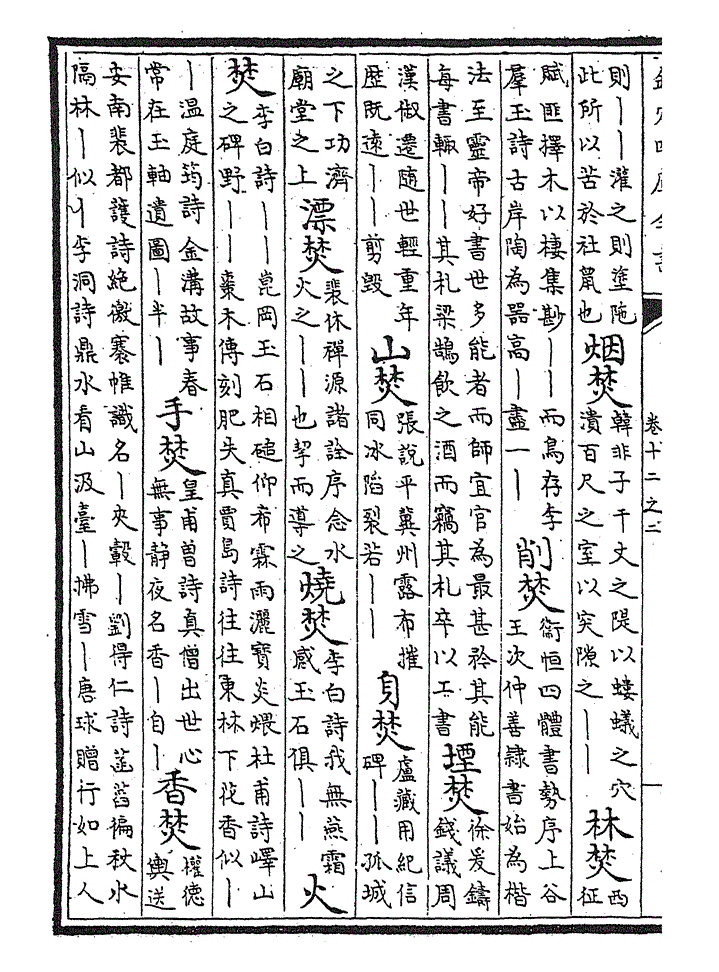 欽定四庫全書
卷十二之二
則丨丨灌之則塗陁
此所以苦於社鼠也
烟焚
韓非子千丈之隄以螻蟻之穴
潰百尺之室以突隙之丨丨
林焚
西
征
賦匪擇木以棲集尠丨丨而鳥存李
羣玉詩古岸陶為器高丨盡一丨
削焚
衞恒四體書勢序上谷
王次仲善隸書始為楷
法至靈帝好書世多能者而師宜官為最甚矜其能
每書輒丨丨其札梁鵠飲之酒而竊其札卒以工書
堙焚
徐爰鑄
錢議周
漢俶遷隨世輕重年
歴既遠丨丨剪毀
山焚
張說平冀州露布摧
同冰陷裂若丨丨
自焚
盧藏用紀信
碑丨丨孤城
之下功濟
廟堂之上
漂焚
裴休禪源諸詮序念水
火之丨丨也挈而導之
燒焚
李白詩我無燕霜
感玉石俱丨丨
火
焚
李白詩丨丨崑岡玉石相磓仰希霖雨灑寶炎煨杜甫詩嶧山
之碑野丨丨棗木傳刻肥失真賈島詩往往東林下花香似丨
丨温庭筠詩金溝故事春
常在玉軸遺圖丨半丨
手焚
皇甫曾詩真僧出世心
無事靜夜名香丨自丨
香焚
權德
輿送
安南裴都護詩絶徼褰帷識名丨夾轂丨劉得仁詩菡萏徧秋水
隔林丨似丨李洞詩鼎水看山汲臺丨拂雪丨唐球贈行如上人